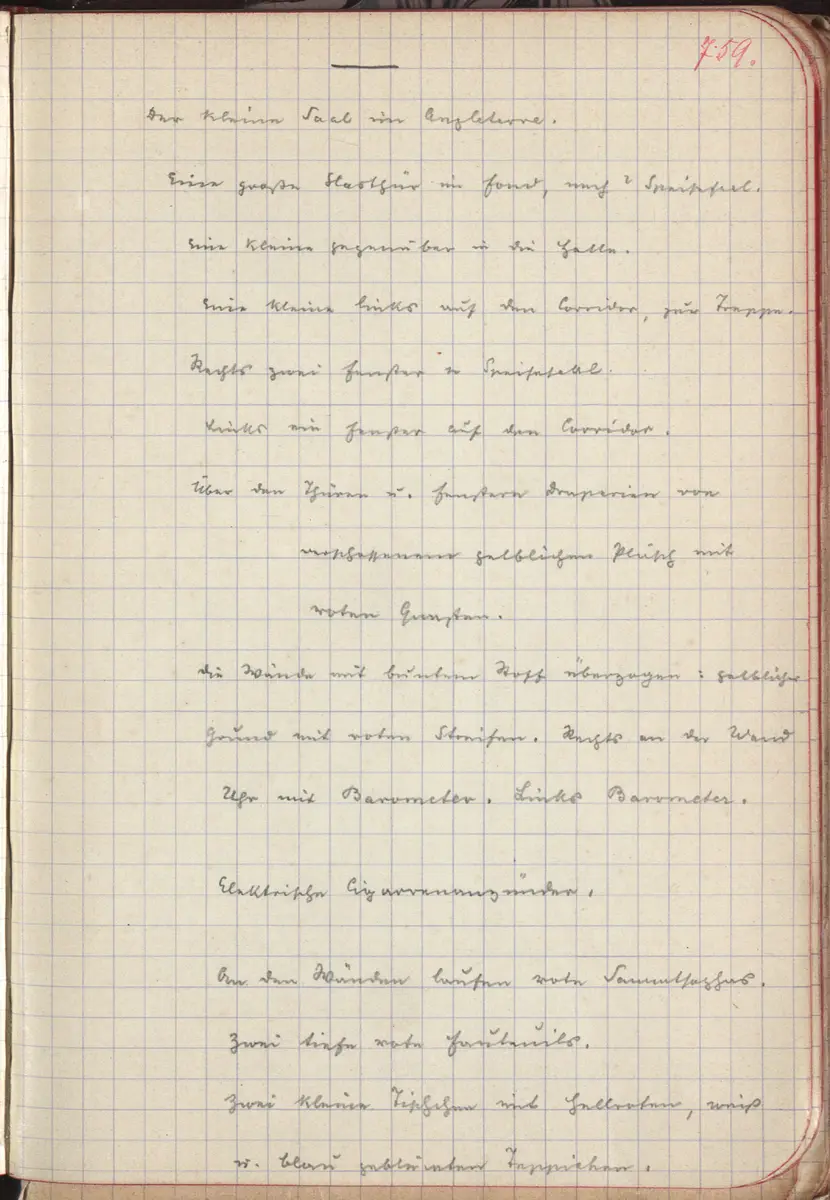 759.
Der kleine Saal im Angleterre.
Eine große Glasthür im Fond, nach d Speisesaal.
Eine kleine gegenüber in die Halle.
Eine kleine links auf den Corridor, zur Treppe.
Rechts zwei Fenster Speisesaal.
Links ein Fenster auf den Corridor.
Über den Thüren u. Fenstern Draperien von
verschossenem gelblichen Plüsch mit
roten Quasten.
Die Wände mit buntem Stoff überzogen: gelblicher
Grund mit roten Streifen. Rechts an der Wand
Uhr mit Barometer. Links Barometer.
Elektrische Cigarrenanzünder.
An den Wänden laufen rote Sammtsophas.
Zwei tiefe rote Fauteuils.
Zwei kleine Tischchen mit hellroten, weiß
u. blau geblümten Teppichen.